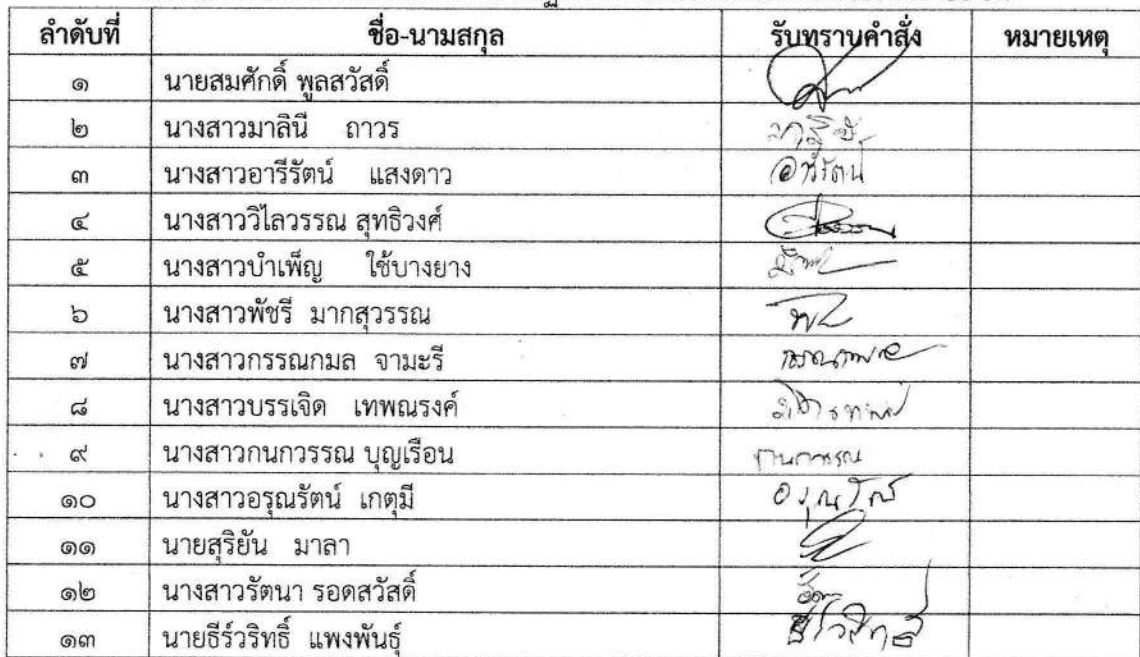 ลำดับที่ ชื่อ-นามสกุล รับทราบคำสั่ง หมายเหตุ
๑ นายสมศักดิ์ พูลสวัสดิ์
๒ นางสาวมาลินี ถาวร
๓ นางสาวอารีรัตน์ แสงดาว อารีรัตน์
๔ นางสาววิไลวรรณ สุทธิวงศ์
๕ นางสาวบำเพ็ญ ใช้บางยาง
๖ นางสาวพัชรี มากสุวรรณ
๗ นางสาวกรรณกมล จามะรี
๘ นางสาวบรรเจิด เทพณรงค์
๙ นางสาวกนกวรรณ บุญเรือน กนกวรรณ
๑๐ นางสาวอรุณรัตน์ เกตุมี อรุณรัตน์
๑๑ นายสุริยัน มาลา
๑๒ นางสาวรัตนา รอดสวัสดิ์
๑๓ นายธีร์วริทธิ์ แพงพันธุ์